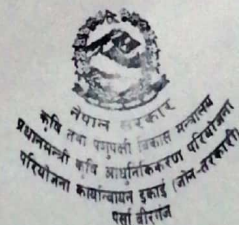 नेपाल सरकार
कृषि तथा पशुपक्षी विकास मन्त्रालय
प्रधानमन्त्री कृषि आधुनिकिकरण परियोजना
परियोजना कार्यान्वयन इकाई (जोन-तरकारी)
पर्सा बीरगंज